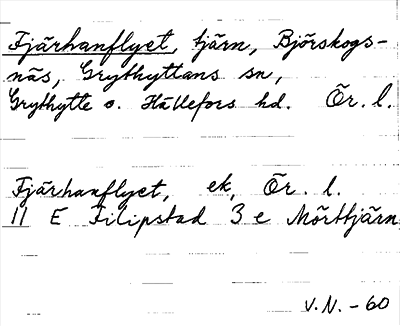 Fjärhanflyet, tjärn, Björskogs-
näs, Grythyttans sn,
Grythytte o. Hällefors hd. Ör. l.
Fjärhanflyet, ek, Ör. l.
11 E Filipstad 3 e Mörttjärn
V.N. - 60